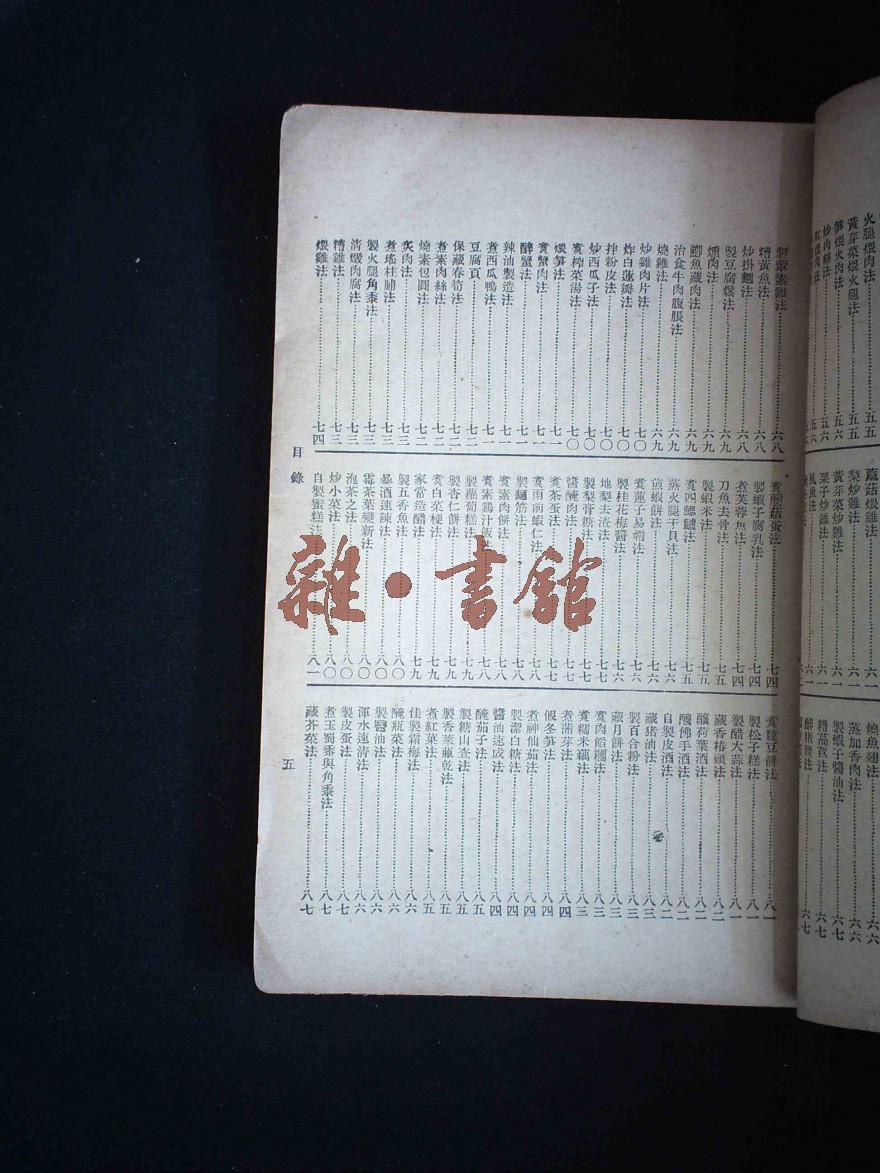 火腿煨肉法……五五
黃芽菜煨火腿法……五五
笋煨火肉法……五六
炒肉絲法……五六
蘑菇煨雞法……六一
梨炒雞法……六一
黃芽菜炒雞法……六一
栗子炒雞法……六一
燒魚翅法……六六
蒸加香肉法……六六
製蝦子醬油法……六七
糟萵苣法……六七
製葷素雞法……六八
糟黃魚法……六八
炒掛麵法……六八
製豆腐鬆法……六九
燻肉法……六九
鯽魚藏肉法……六九
治食牛肉腹脹法……六九
燒雞法……六九
炒雞肉片法……七〇
炸白蓮瓣法……七〇
拌粉皮法……七〇
炒西瓜子法……七〇
煑榨菜湯法……七〇
煨笋法……七一
煑蟹肉法……七一
醉蟹法……七一
辣油製造法……七一
煮西瓜鴨法……七一
豆腐頁……七二
保藏春筍法……七二
煮素肉絲法……七二
燒素包圓法……七二
炙肉法……七三
煮瑤柱脯法……七三
製火腿角黍法……七三
清燉肉腐法……七三
糟雞法……七三
煨雞法……七四
煑蘑菇蛋法……七四
製蝦子腐乳法……七四
煮芙蓉魚法……七四
刀魚去骨法……七五
製蝦米法……七五
煑四鰓鱸法……七五
煎蝦餅法……七六
蒸火腿干貝法……七六
煑蓮子易稠法……七六
製桂花梅醬法……七六
地梨去渣法……七七
製梨膏糖法……七七
醬醃肉法……七七
煑茶蛋法……七七
煑雨前蝦仁法……七八
製麵筋法……七八
煑素肉餅法……七八
煑素鷄汁飯法……七八
製葫蔔糕法……七九
製杏仁餅法……七九
煑白菜梗法……七九
家常造醋法……七九
製五香魚法……八〇
暴酒速陳法……八〇
霉茶葉變新法……八〇
泡茶之法……八〇
炒小菜法……八〇
自製蜜糕法……八一
煑蠶豆餅法……八一
製松子糕法……八一
製醋大蒜法……八一
藏香椿頭法……八二
釀荷葉酒法……八二
釀佛手酒法……八二
自製皮酒法……八三
藏猪油法……八三
製百合粉法……八三
藏月餅法……八三
煑肉餡糰法……八三
煑糯米藕法……八三
煮蒲芽法……八四
假冬笋法……八四
煮神仙茄法……八四
製潔白糖法……八四
醬油速成法……八四
醃茄子法……八五
製糖山查法……八五
製香菜蘿乾法……八五
煮紅菓法……八五
佳製霜梅法……八六
醃瓶菜法……八六
製醫油法……八六
渾水速清法……八六
製皮蛋法……八七
煮玉蜀黍與角黍法……八七
藏芥菜法……八七
目錄
五
雜·書館